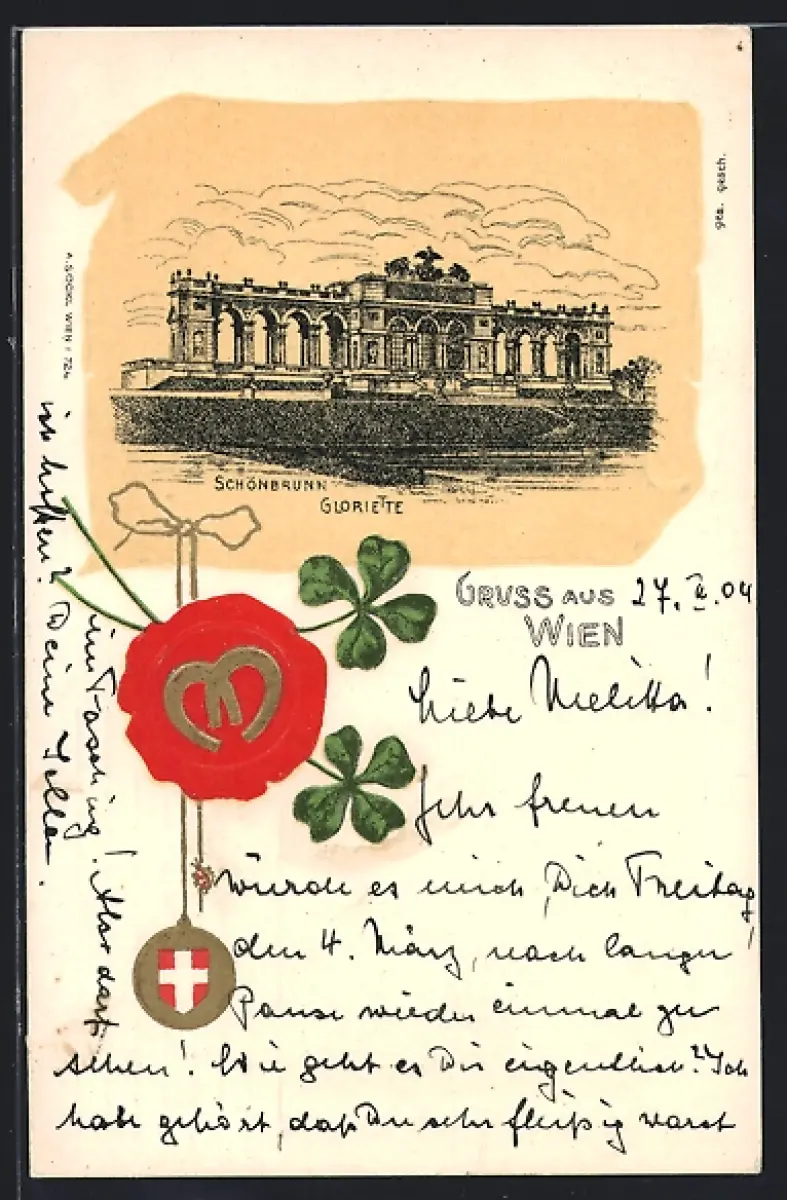 ges. gesch.
A. SOCKL WIEN I 724
SCHÖNBRUNN
GLORIETTE
GRUSS AUS
WIEN
27. II. 04
Liebe Melitta!
Sehr freuen
würde es mich, Dich Freitag,
den 4. März, nach langer
Pause wieder einmal zu
sehen! Wie geht es Dir eigentlich? Ich
habe gehört, daß Du sehr fleißig warst
im Fasching! Also darf
ich hoffen? Deine